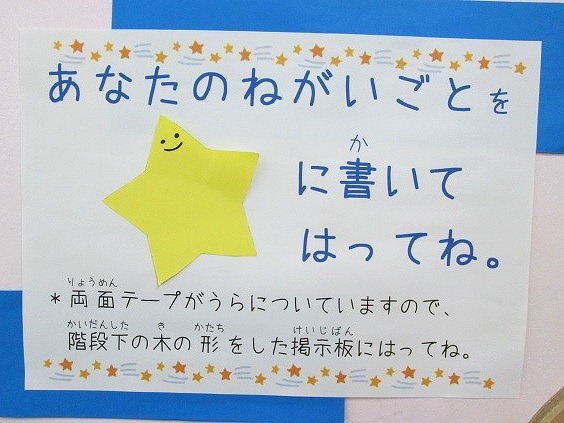 あなたのねがいごとを
か
に書いて
はってね。
りょうめん
*両面テープがうらについていますので、
かいだんした き かたち けいじばん
階段下の木の形をした掲示板にはってね。